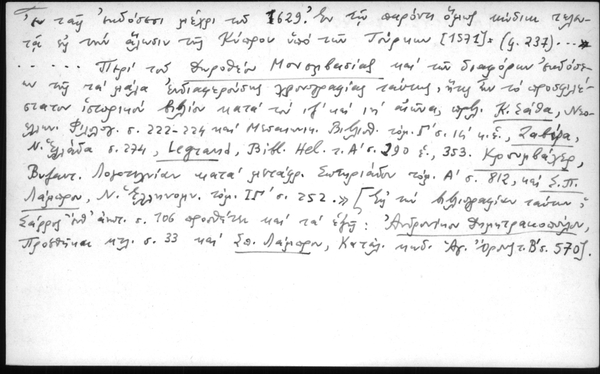 ἐν ταῖς ἐκδόσεσι μέχρι τοῦ 1629. Ἐν τῷ παρόντι ὅμως κώδικι τελευ-
τᾷ εἰς τὴν ἅλωσιν τῆς Κύπρου ὑπὸ τῶν Τούρκων [1571]: (φ. 237)....»
..... Περὶ τοῦ Δωροθέου Μονεμβασίας καὶ τῶν διαφόρων ἐκδόσε-
ων τῆς τὰ μάλα ἐνδιαφερούσης χρονογραφίας ταύτης, ἥτις ἦν τὸ προσφιλέ-
στατον ἱστορικὸν βιβλίον κατὰ τὸν ιζ' καὶ ιη' αἰῶνα, πρβλ. Κ. Σάθα, Νεο-
ελλην. Φιλολ. σ. 222-224 καὶ Μεσαιων. Βιβλιοθ. τόμ. Γ' σ. ιή κ.ἑ., Ζαβίρα,
Ν. Ἑλλάδα σ. 274, Legrand, Bibl. Hel. τ. Α' σ. 290 ἑ., 353. Κρουμβάχερ,
Βυζαντ. Λογοτεχνίαν κατὰ μετάφρ. Σωτηριάδου τόμ. Α' σ. 812, καὶ Σ.Π.
Λάμπρου, Ν. Ἑλληνομν. τόμ. ΙΓ' σ. 252.» [Εἰς τὴν βιβλιογραφίαν ταύτην ὁ
Σάρρος ἐνθ' ἀνωτ. σ. 106 προσθέτει καὶ τὰ ἑξῆς: Ἀνδρονίκου Δημητρακοπούλου,
Προσθῆκαι κτλ. σ. 33 καὶ Σπ. Λάμπρου, Κατάλ. κωδ. Ἁγ. Ὄρους τ. Β' σ. 570].